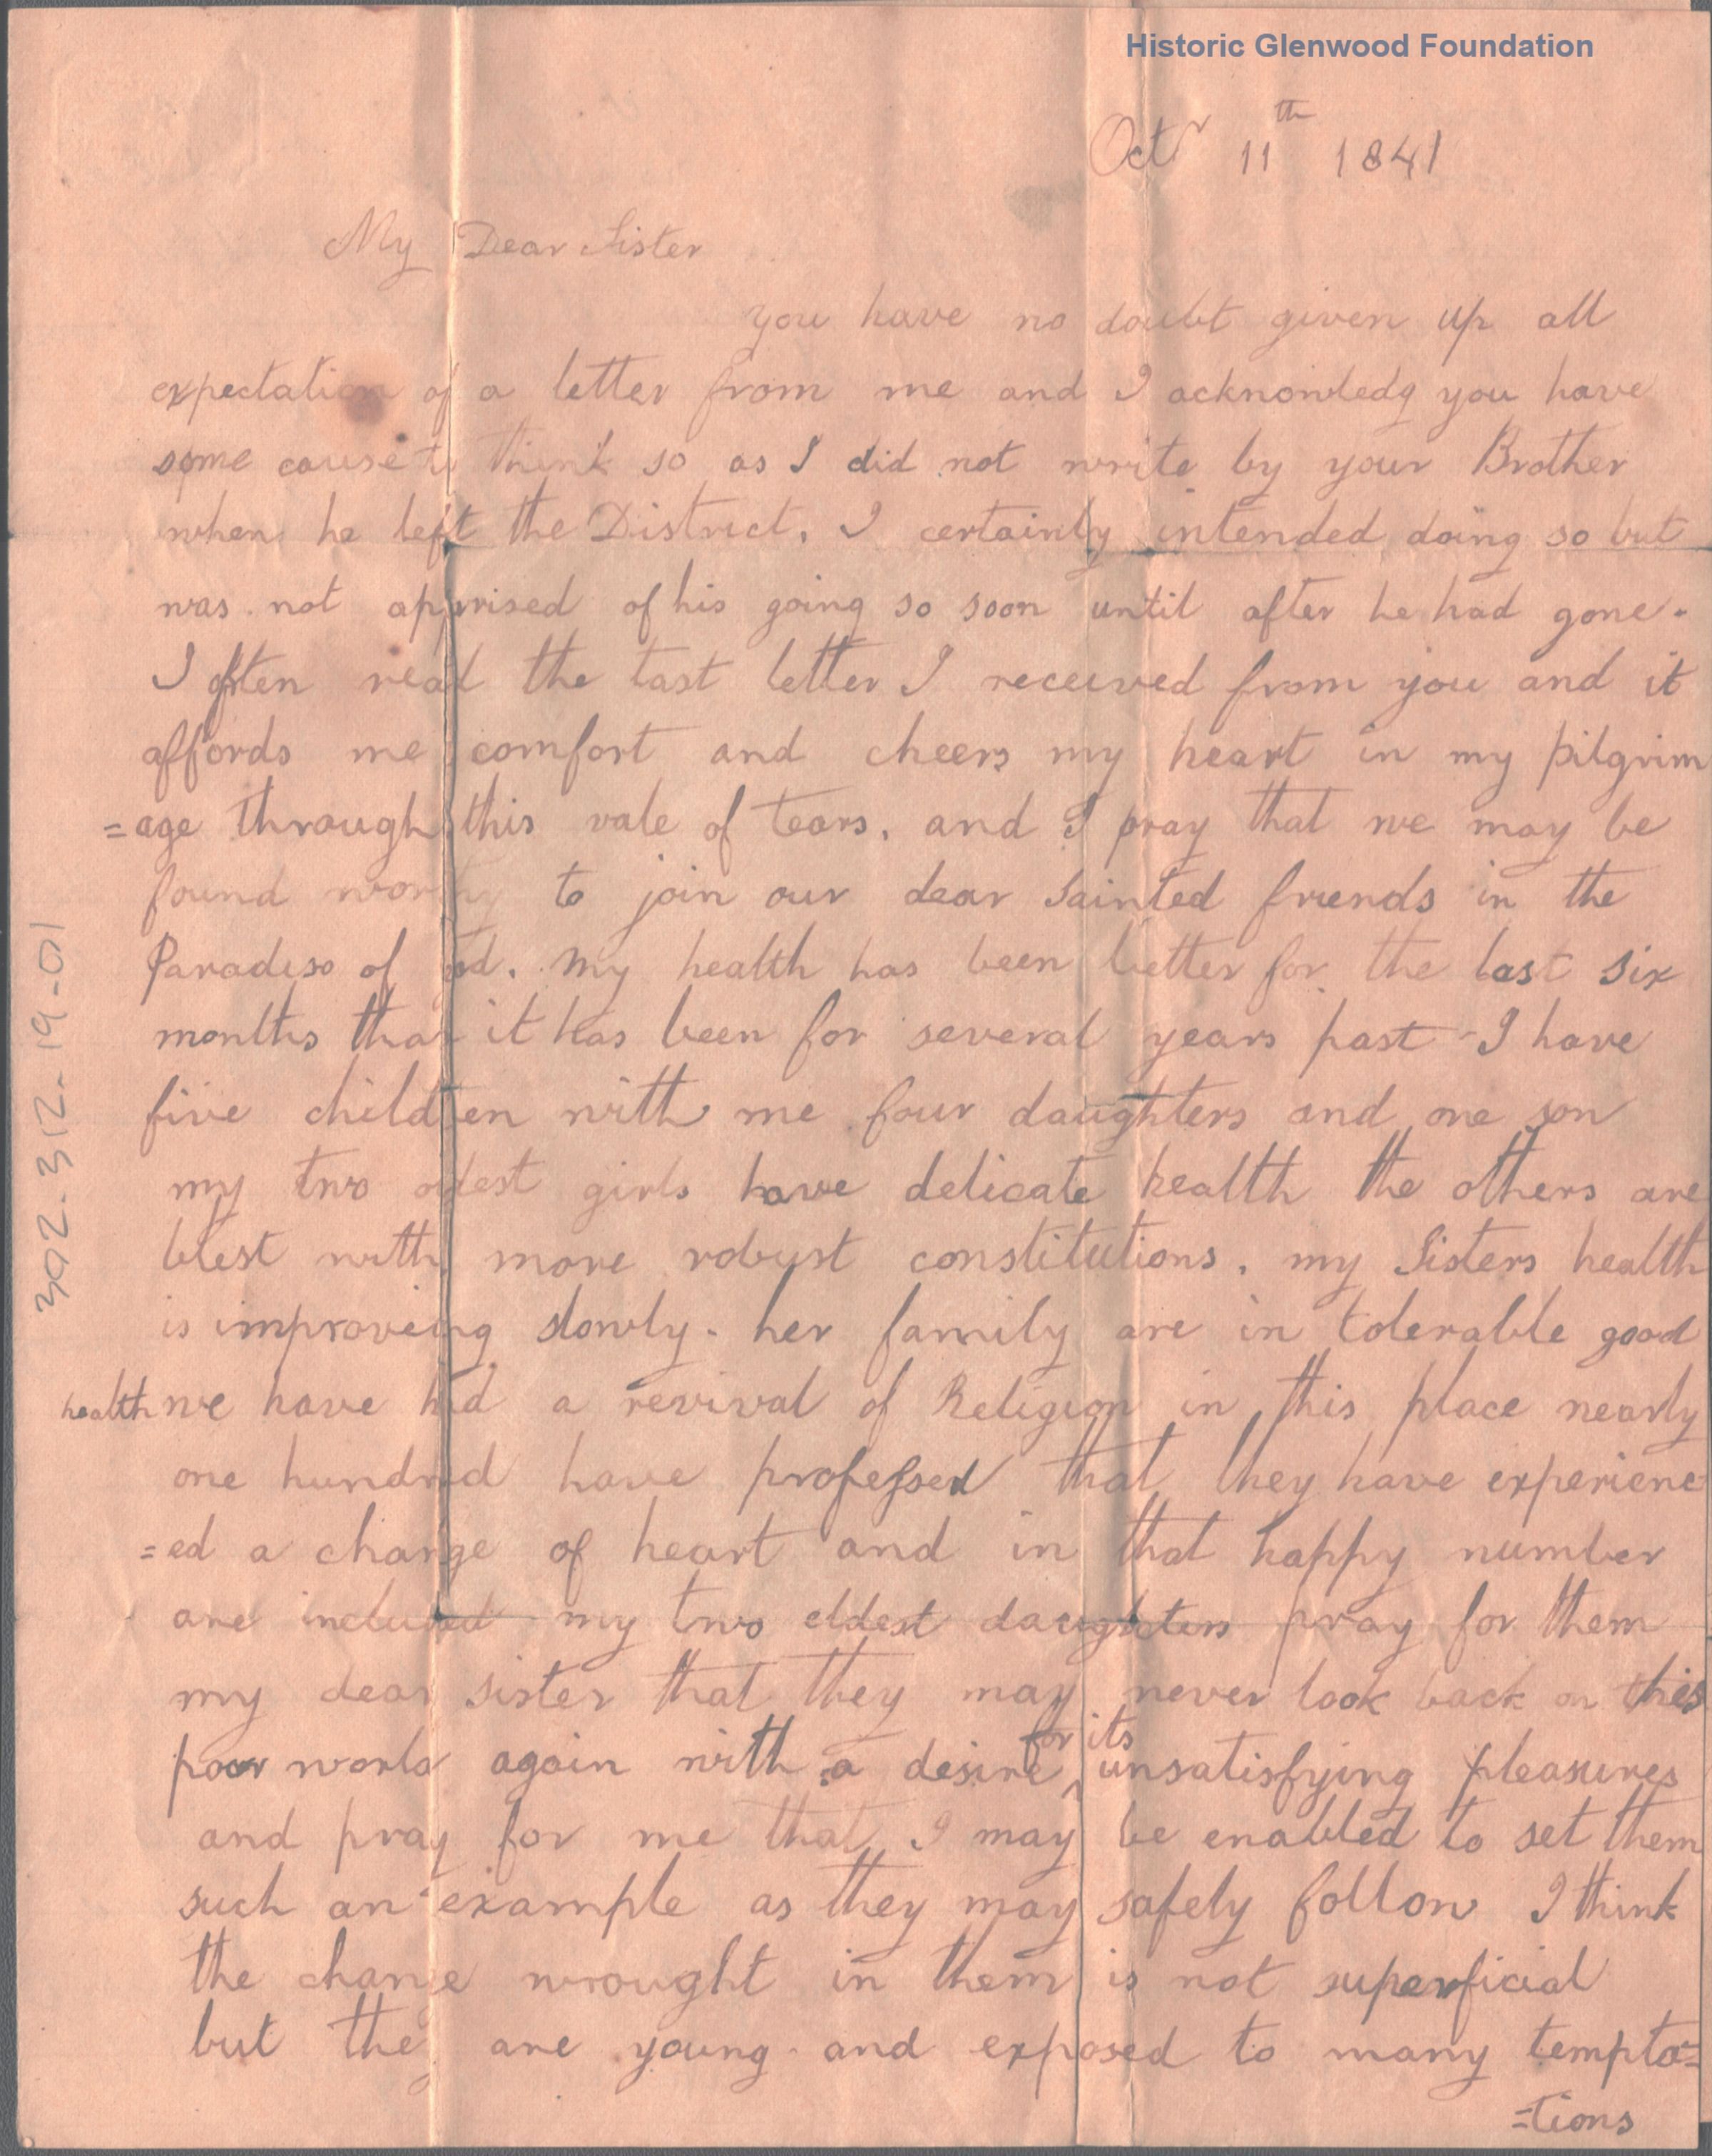 Historic Glenwood Foundation
Octr 11th 1841
My Dear Sister
you have no doubt given up all
expectation of a letter from me and I acknowledg you have
some cause to think so as I did not write by your Brother
when he left the District, I certainly intended doing so but
was not apprised of his going so soon until after he had gone.
I often read the last letter I received from you and it
affords me comfort and cheers my heart in my pilgrim
=age through this vale of tears, and I pray that we may be
found worthy to join our dear sainted friends in the
Paradise of God. My health has been better for the last six
months than it has been for several years past - I have
five children with me four daughters and one son
my two oldest girls have delicate health the others are
blest with more robust constitutions, my Sisters health
is improveing slowly. her family are in tolerable good
health we have had a revival of Religion in this place nearly
one hundred have professed that they have experienc
=ed a change of heart and in that happy number
are included my two eldest daughters pray for them
my dear sister that they may never look back on this
poor world again with a desire for its unsatisfying pleasures
and pray for me that I may be enabled to set them
such an example as they may safely follow I think
the change wrought in them is not superficial
but they are young and exposed to many tempta=
=tions
392.312-19-01